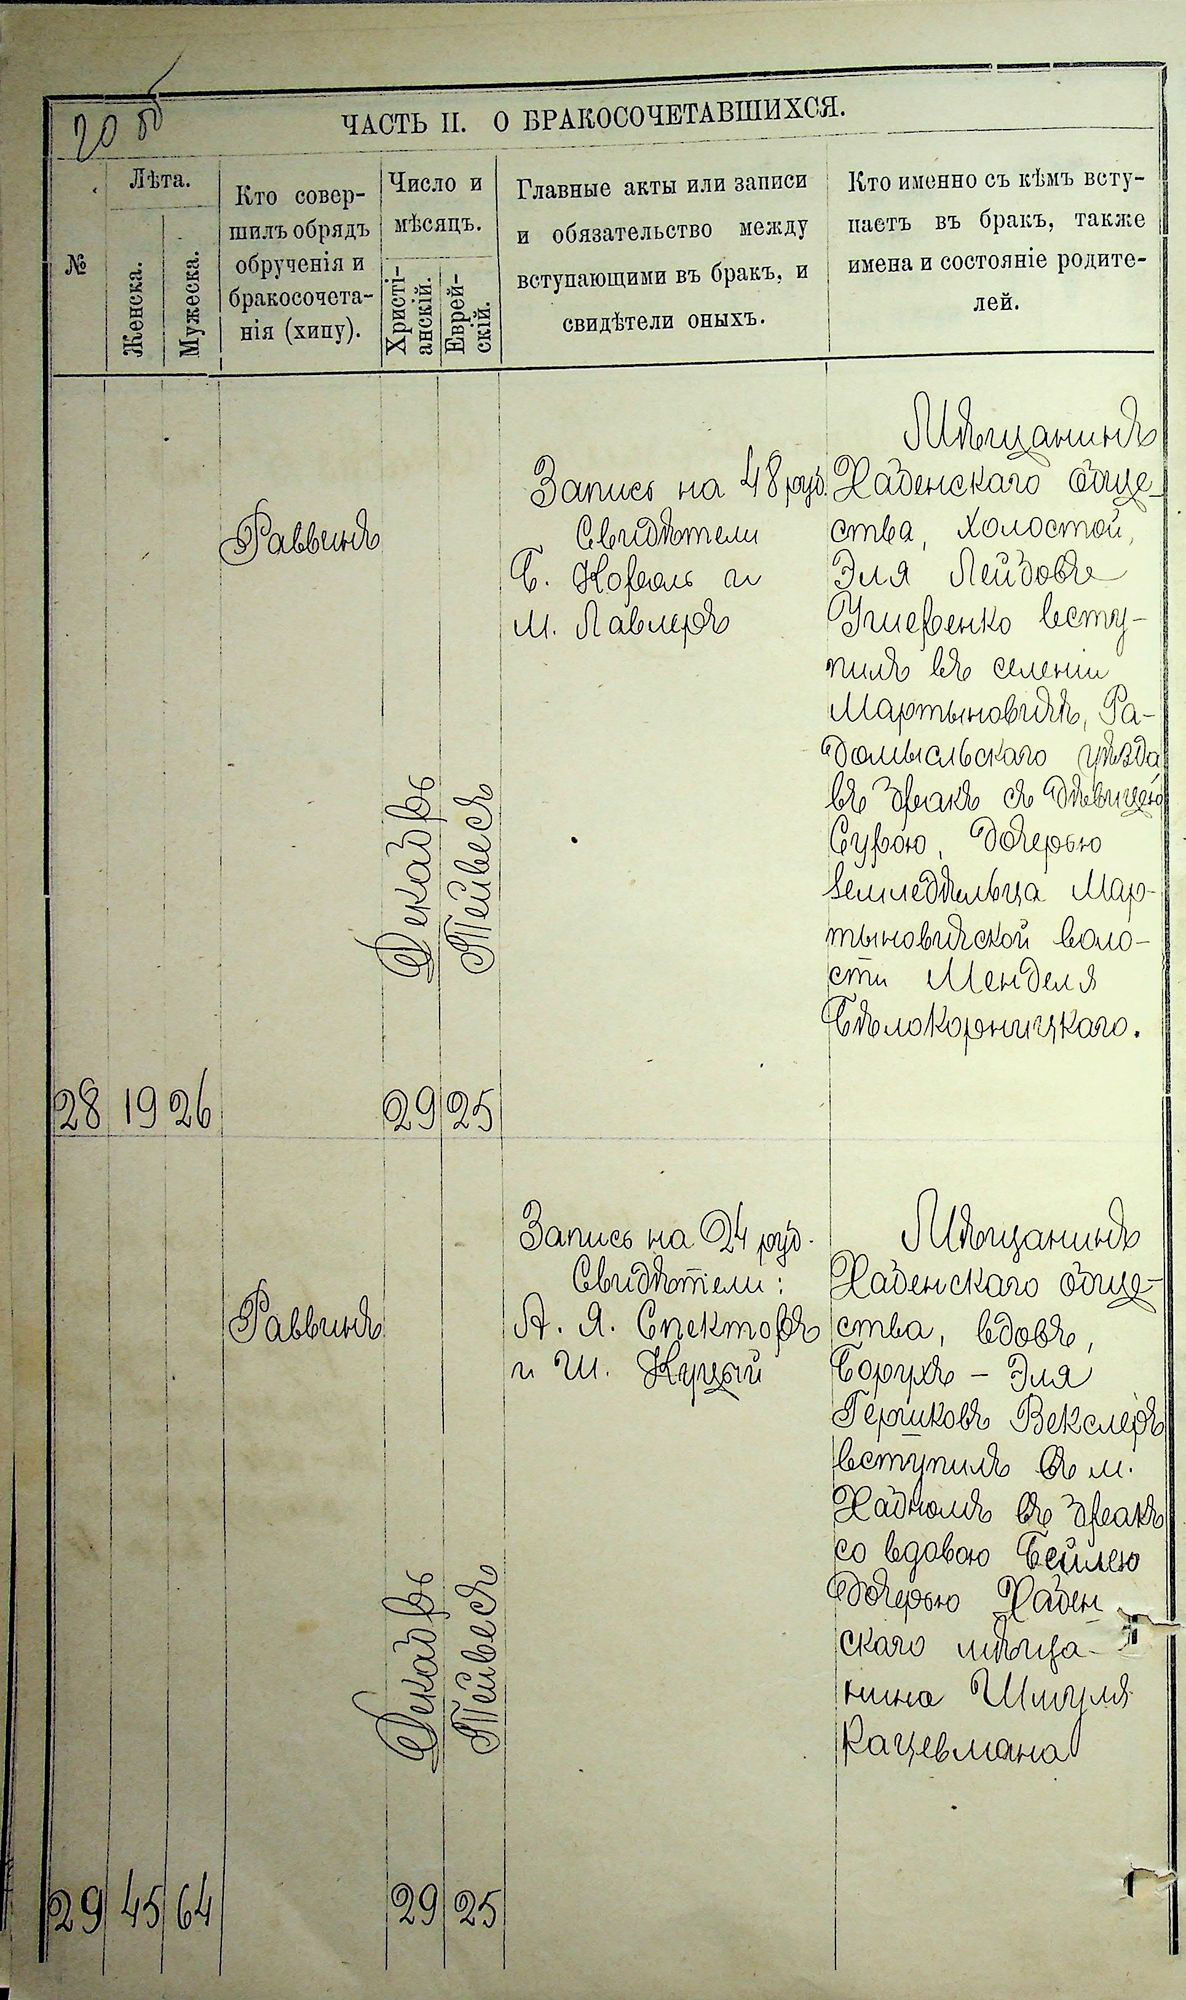 20 об
ЧАСТЬ II. О БРАКОСОЧЕТАВШИХСЯ.
№
Лѣта.
Женска.
Мужеска.
Кто совер-
шилъ обрядъ
обрученія и
бракосочета-
нія (хипу).
Число и
мѣсяцъ.
Христі-
анскій.
Еврей-
скій.
Главные акты или записи
и обязательство между
вступающими въ бракъ, и
свидѣтели оныхъ.
Кто именно съ кѣмъ всту-
паетъ въ бракъ, также
имена и состояніе родите-
лей.
28
19
26
Раввинъ
Декабрь
29
Тейвесъ
25
Запись на 48 руб.
Свидѣтели
Б. Кобель и
М. Лавлеръ
Мѣщанинъ
Хабенскаго обще-
ства, холостой,
Эля Лейбовъ
Усиевенко всту-
пилъ въ селеніи
Мартыновичѣ, Ра-
домысльскаго уѣзда
въ бракъ съ дѣвицею
Сурою, дочерью
земледѣльца Мар-
тыновичской воло-
сти Менделя
Бѣлокорницкаго.
29
45
64
Раввинъ
Декабрь
29
Тейвесъ
25
Запись на 24 руб.
Свидѣтели:
А. Я. Спекторъ
и Ш. Куцый
Мѣщанинъ
Хабенскаго обще-
ства, вдовъ,
Борухъ - Эля
Гершковъ Векслеръ
вступилъ въ м.
Хабномъ въ бракъ
со вдовою Бейлею
дочерью Хабен
скаго мѣща-
нина Шмуля
Кацевмана